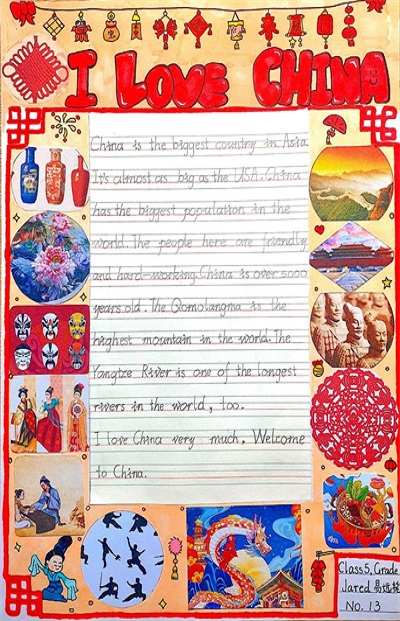 I LOVE CHINA
China is the biggest country in Asia.
It's almost as big as the USA. China
has the biggest population in the
world. The people here are friendly
and hard-working. China is over 5000
years old. The Qomolangma is the
highest mountain in the world. The
Yangtze River is one of the longest
rivers in the world, too.
I love China very much. Welcome
to China.
Class5, Grade
Jared
No. 13